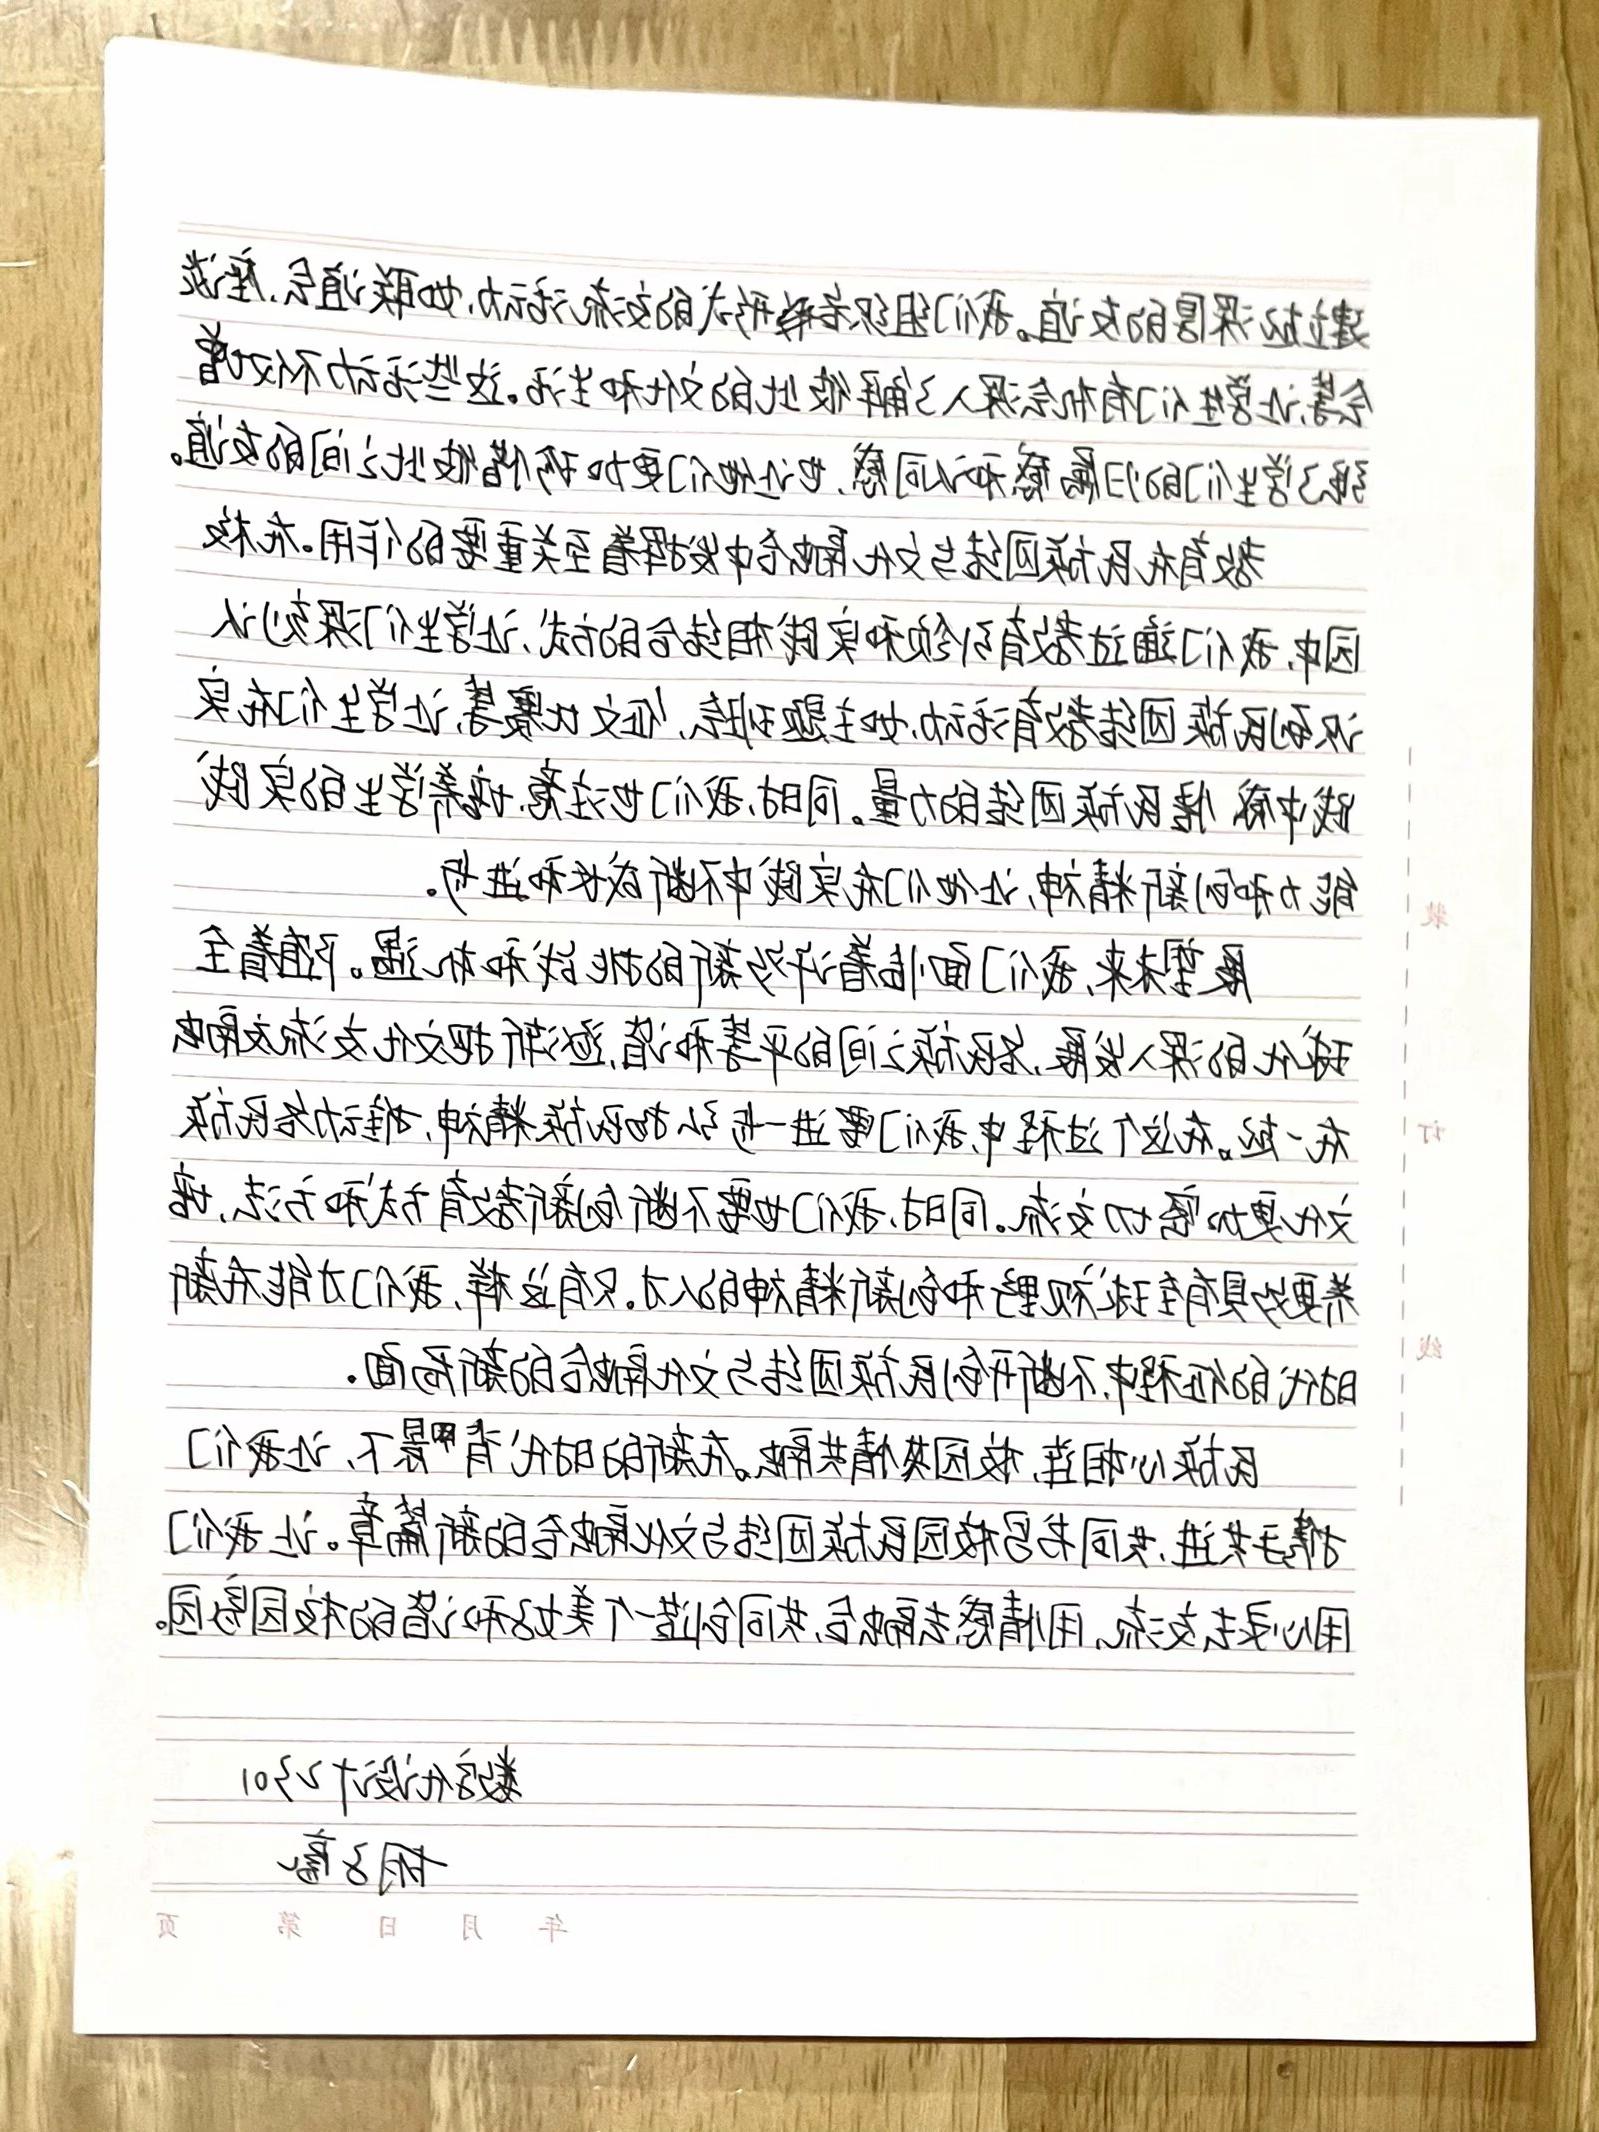 建立起深厚的友谊。我们组织各种形式的交流活动,如联谊会、座谈
会等,让学生们有机会深入了解彼此的文化和生活。这些活动不仅增
强了学生们的归属感和认同感、也让他们更加珍惜彼此之间的友谊。
教育在民族团结与文化融合中发挥着至关重要的作用。在校
园中,我们通过教育引领和实践相结合的方式,让学生们深刻认
识到民族团结教育活动,如主题班会、征文比赛等,让学生们在实
践中感悟民族团结的力量。同时,我们也注意培养学生的实践
能力和创新精神,让他们在实践中不断成长和进步。
展望未来,我们面临着许多新的挑战和机遇。随着全
球化的深入发展,各民族之间的平等和谐,逐渐把文化交流交融
在一起。在这个过程中,我们要进一步弘扬民族精神,推动各民族
文化更加密切交流。同时,我们也要不断创新教育方式和方法,培
养更多具有全球视野和创新精神的人才。只有这样,我们才能在新
时代的征程中,不断开创民族团结与文化融合的新局面。
民族心相连,校园共情共融。在新的时代背景下,让我们
携手共进,共同书写校园民族团结与文化融合的新篇章。让我们
用心灵去交流,用情感去融合,共同创造一个美好和谐的校园家园。
数字化设计2301
胡子豪
装
订
线
年 月 日 第 页